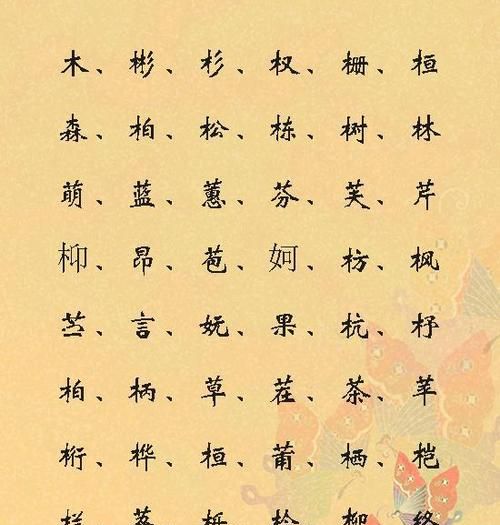 木、彬、杉、杈、栅、桓
森、柏、松、栋、树、林
萌、蓝、蕙、芬、芙、芹
枊、昂、苞、妸、枋、枫
、言、妩、果、杭、杼
柏、柄、草、茬、茶、苹
桁、桦、桓、莆、栖、桤